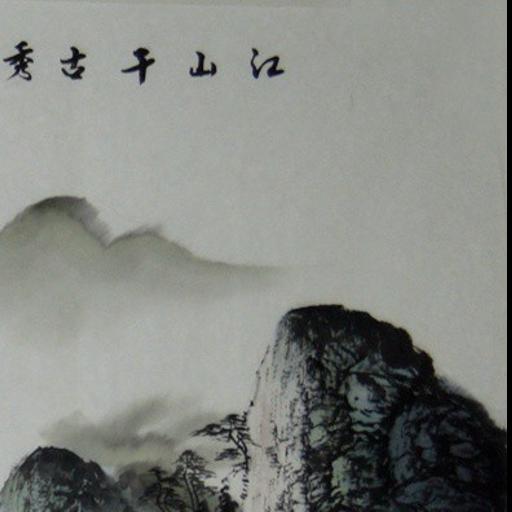 江山千古秀